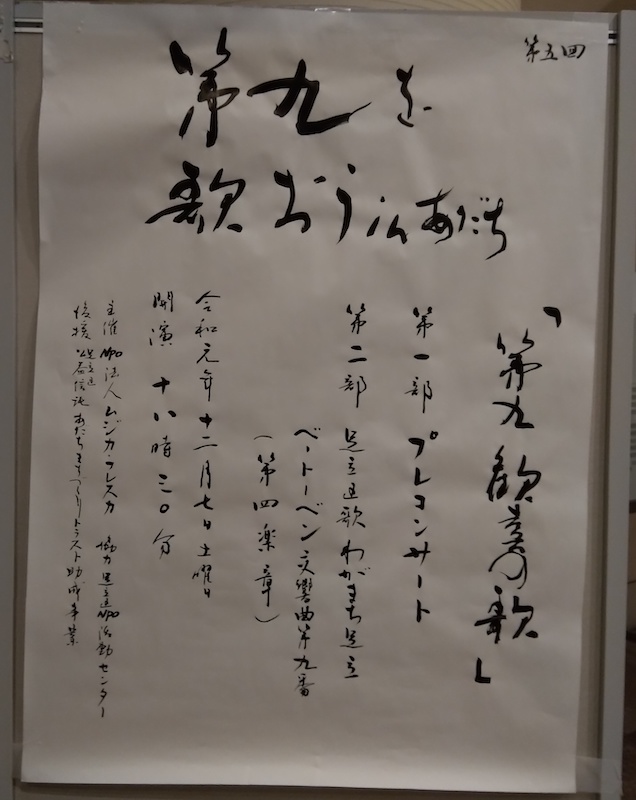 第五回
第九を
歌おう in あだち
「第九歓喜の歌」
第一部 プレコンサート
第二部 足立区歌 わがまち足立
ベートーベン交響曲第九番
(第四楽章)
令和元年十二月七日土曜日
開演 十八時三〇分
主催 NPO法人 ムジカ・フレスカ 協力 足立区NPO活動センター
後援 足立区 公益信託 あだちまちづくりトラスト助成事業